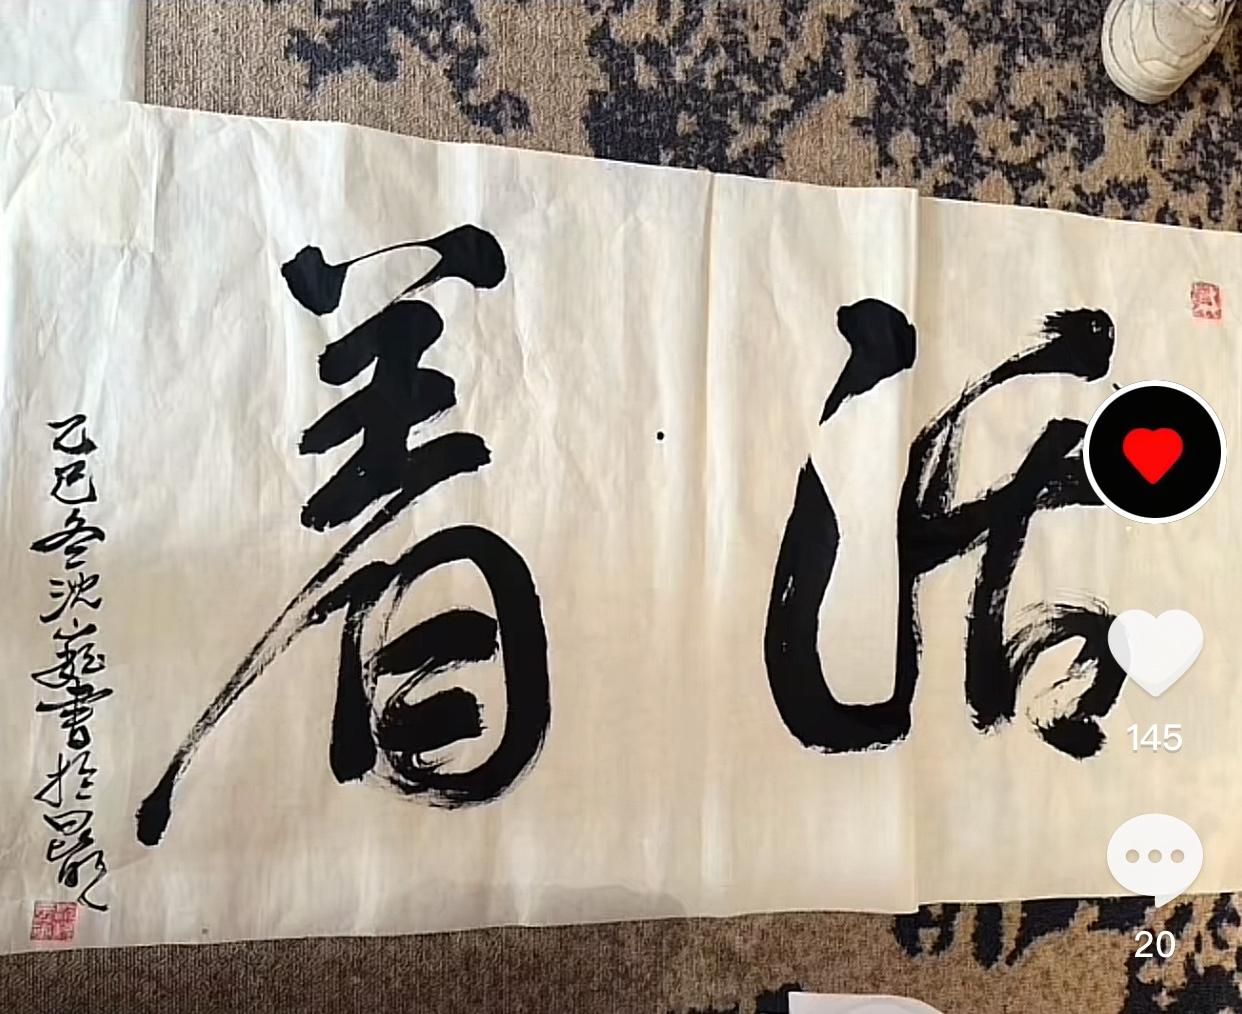 活着
乙巳冬沈巍書於昆明
145
20